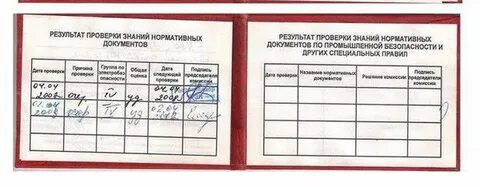 РЕЗУЛЬТАТ ПРОВЕРКИ ЗНАНИЙ НОРМАТИВНЫХ
ДОКУМЕНТОВ
Дата проверки Причина проверки Группа по электробезопасности Общая оценка Дата следующей проверки Подпись председателя комиссии
04.04 04.04
2008 IV уд 2008
01.04 02.04
2008 IV уд
РЕЗУЛЬТАТ ПРОВЕРКИ ЗНАНИЙ НОРМАТИВНЫХ
ДОКУМЕНТОВ ПО ПРОМЫШЛЕННОЙ БЕЗОПАСНОСТИ И
ДРУГИХ СПЕЦИАЛЬНЫХ ПРАВИЛ
Дата проверки Название нормативных документов Решение комиссии Подпись председателя комиссии